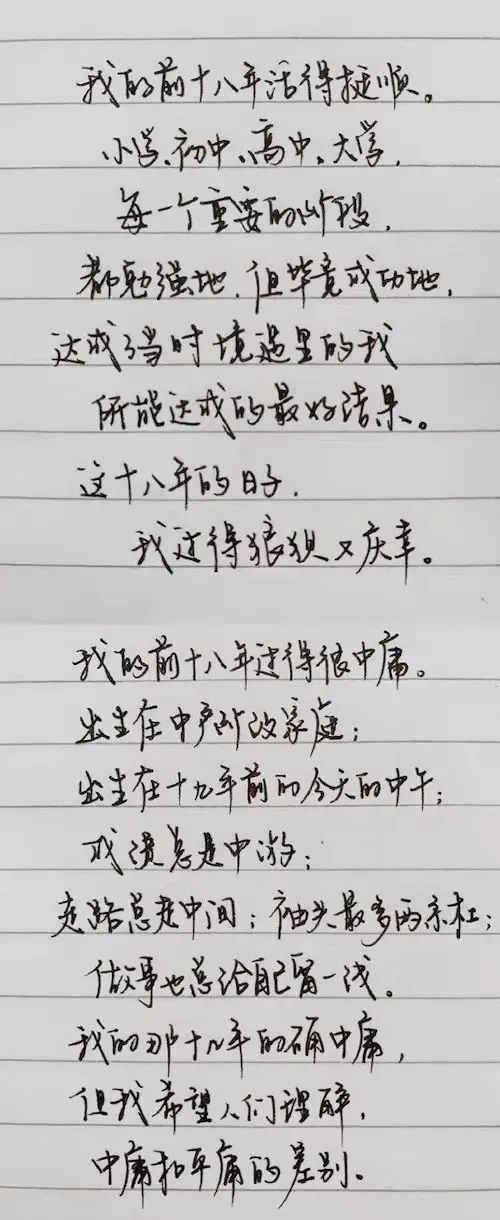 我的前十八年活得挺顺。
小学、初中、高中、大学,
每一个重要的阶段,
都勉强地,但毕竟成功地,
达成了当时境遇里的我
所能达成的最好结果。
这十八年的日子,
我过得狼狈又庆幸。
我的前十八年过得很中庸。
出生在中产阶级家庭;
出生在十九年前的今天的中午;
成绩总是中游;
走路总走中间;袖头最多两条杠;
做事也总给自己留一线。
我的那十八年的确中庸,
但我希望人们理解,
中庸和平庸的差别。